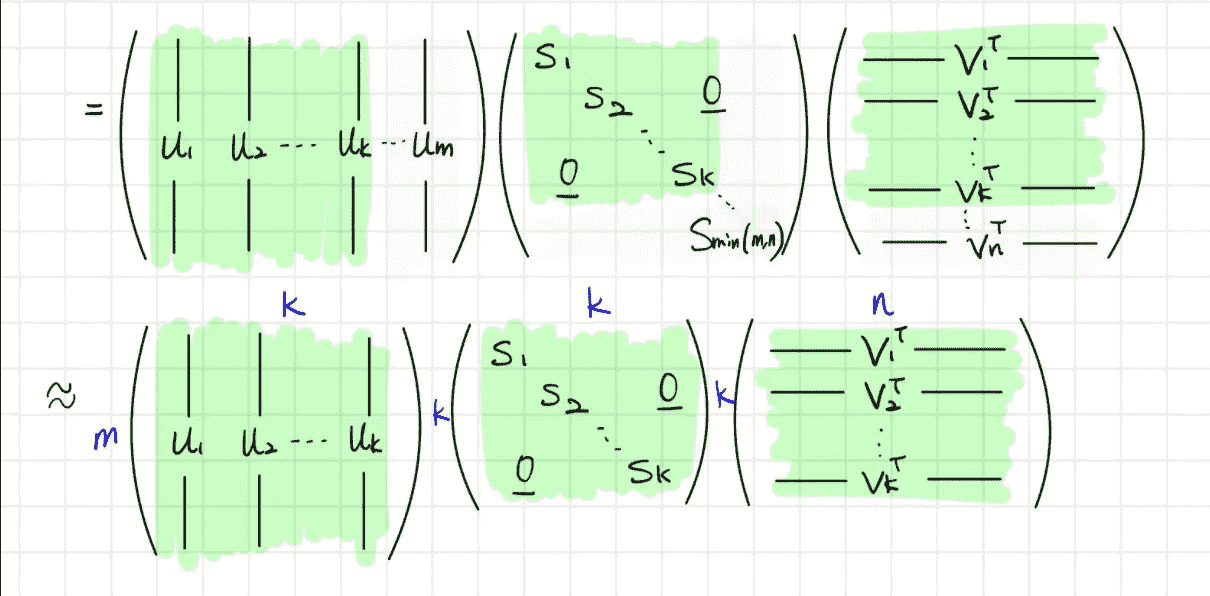 = ( u₁ u₂ ---- uₖ ---- uₘ ) ( S₁ S₂ ⋱ Sₖ ⋱ Smin(m,n) 0 0 ) ( V₁ᵀ V₂ᵀ ⋮ Vₖᵀ ⋮ Vₙᵀ )
k k n
≈ m ( u₁ u₂ ---- uₖ ) k ( S₁ S₂ ⋱ Sₖ 0 0 ) k ( V₁ᵀ V₂ᵀ ⋮ Vₖᵀ )